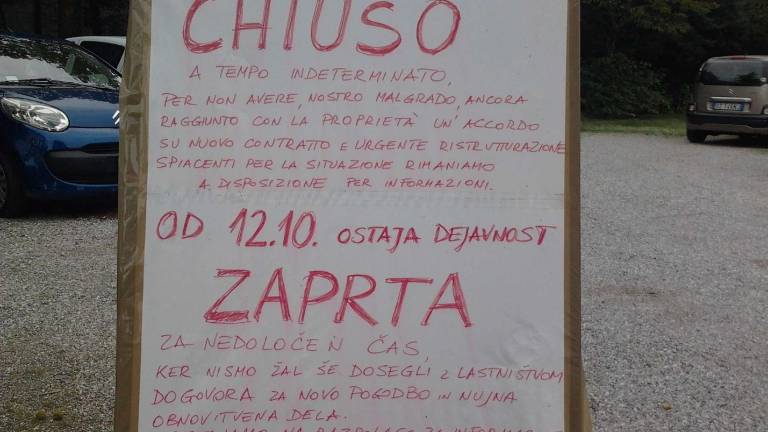 CHIUSO
A TEMPO INDETERMINATO,
PER NON AVERE, NOSTRO MALGRADO, ANCORA
RAGGIUNTO CON LA PROPRIETÀ UN'ACCORDO
SU NUOVO CONTRATTO E URGENTE RISTRUTTURAZIONE
SPIACENTI PER LA SITUAZIONE RIMANIAMO
A DISPOSIZIONE PER INFORMAZIONI.
OD 12.10. OSTAJA DEJAVNOST
ZAPRTA
ZA NEDOLOČEN ČAS,
KER NISMO ŽAL ŠE DOSEGLI Z LASTNIŠTVOM
DOGOVORA ZA NOVO POGODBO IN NUJNA
OBNOVITVENA DELA.